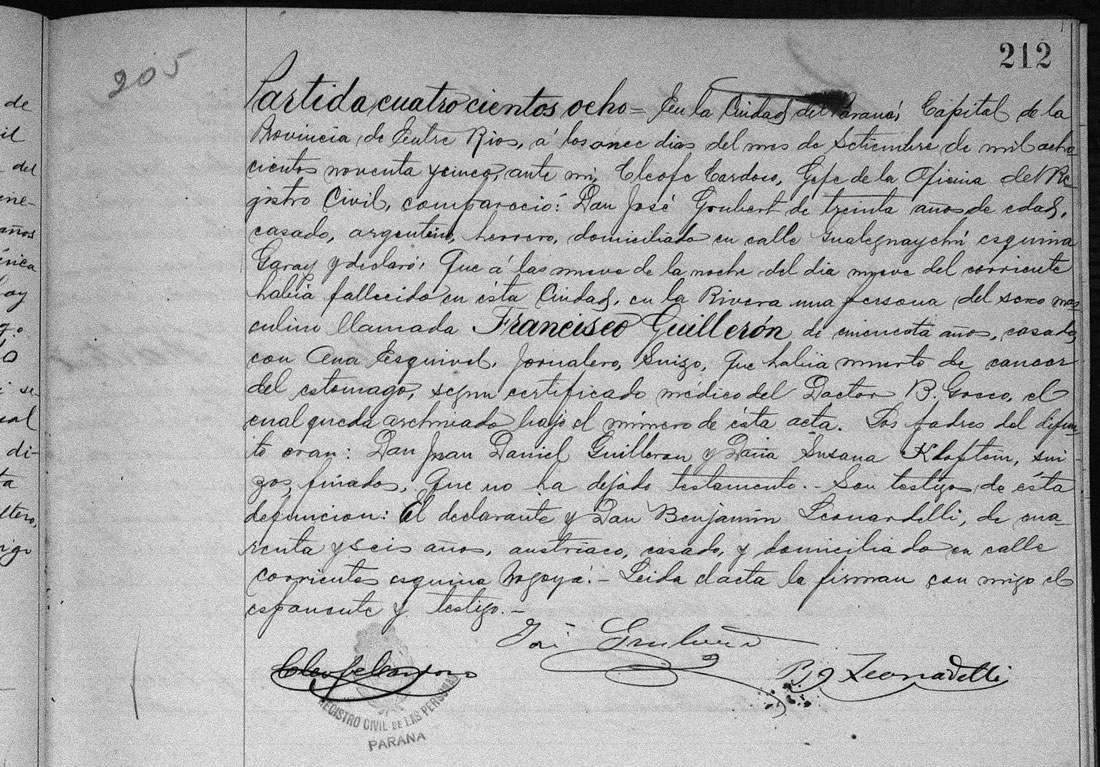 212
205
de
il
del
ne-
años
ay
sual
di-
ta
Partida cuatrocientos ocho = En la Ciudad del Paraná, Capital de la
Provincia de Entre Rios, á los once dias del mes de Setiembre de mil ocho-
cientos noventa y cinco, ante mi, Cleofe Cardoso, Gefe de la Oficina del Re-
gistro Civil, compareció: Don José Groubert de treinta años de edad,
casado, argentino, herrero, domiciliado en calle Gualeguaychú esquina
Garay y declaró: Que á las nueve de la noche del dia nueve del corriente
habia fallecido en ésta Ciudad, en la Rivera una persona del sexo mas-
culino llamada Francisco Guillerón de cincuenta años, casado,
con Ana Esquivel, Jornalero, Suizo, que habia muerto de cancer
del estomago, segun certificado médico del Doctor B. Grosso, el
cual queda archivado bajo el número de ésta acta. Los padres del difun-
to eran: Don Juan Daniel Guilleron y Doña Susana suí-
zos, finados, Que no ha dejado testamento.- Son testigos de ésta
defuncion: El declarante y Don Benjamin Leonardelli, de cua-
renta y seis años, austriaco, casado, y domiciliado en calle
Corrientes esquina Nogoyá.- Leida el acta la firman con migo el
esponente y testigo.-
José
Cleofe Cardoso
Leonardelli
REGISTRO CIVIL DE LAS PERSONAS
PARANA